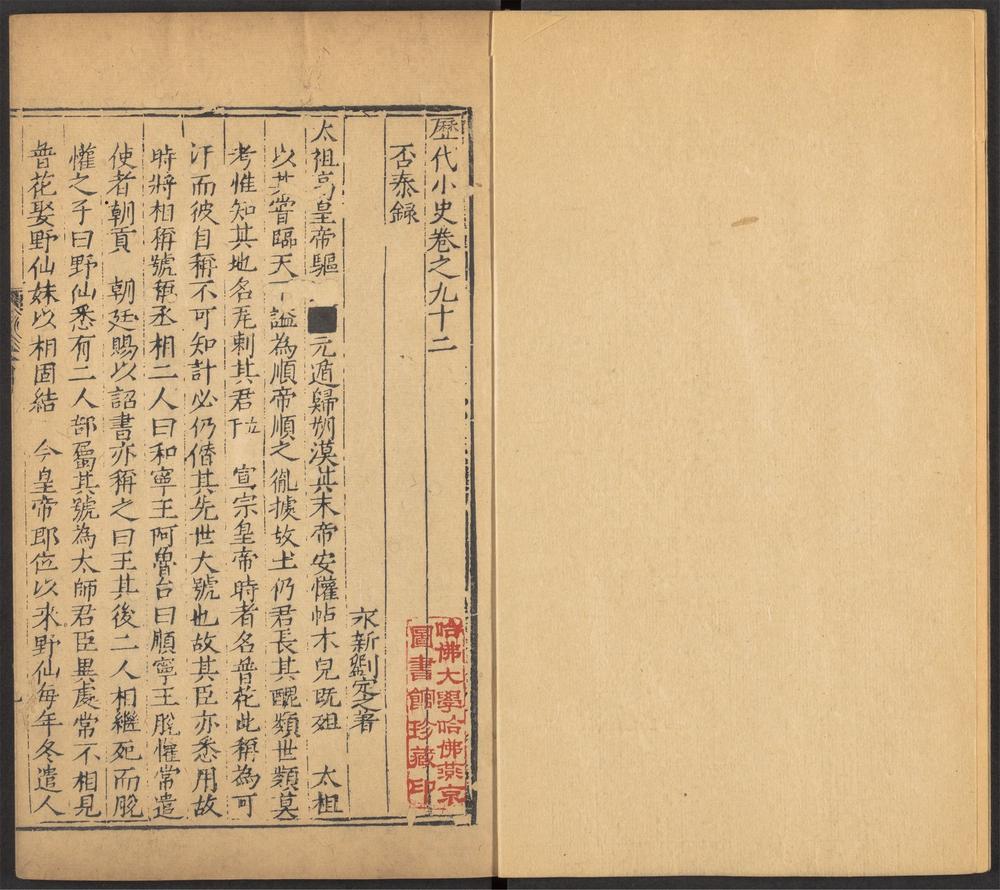 歷代小史卷之九十二
否泰録
永新劉定之著
太祖高皇帝驅■元遁歸朔漠其末帝安懽帖木兒既殂 太祖
以其嘗臨天下謚為順帝順之胤據故土仍君長其醜類世類莫
考惟知其地名瓦剌其君 宣宗皇帝時者名普花此稱為可
汗而彼自稱不可知計必仍僭其先世大號也故其臣亦悉用故
時將相稱號 丞相二人曰和寧王阿魯台曰順寧王脫懽常遣
使者朝貢 朝廷賜以詔書亦稱之曰王其後二人相繼死而脫
懽之子曰野仙悉有二人部屬其號為太師君臣異處常不相見
普花娶野仙妹以相固結 今皇帝即位以來野仙每年冬遣人
哈佛大學哈佛燕京
圖書館珍藏印